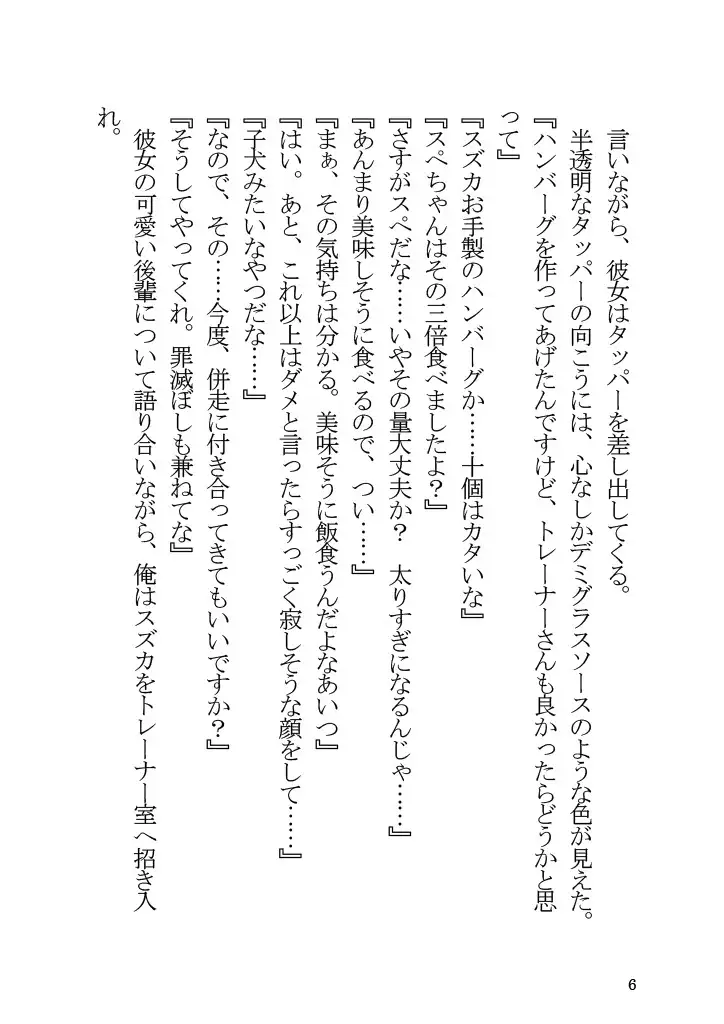 言いながら、彼女はタッパーを差し出してくる。
半透明なタッパーの向こうには、心なしかデミグラスソースのような色が見えた。
『ハンバーグを作ってあげたんですけど、トレーナーさんも良かったらどうかと思
って』
『スズカお手製のハンバーグか……十個はカタいな』
『スペちゃんはその三倍食べましたよ？』
『さすがスペだな……いやその量大丈夫か？　太りすぎになるんじゃ……』
『あんまり美味しそうに食べるので、つい……』
『まぁ、その気持ちは分かる。美味そうに飯食うんだよなあいつ』
『はい。あと、これ以上はダメと言ったらすっごく寂しそうな顔をして……』
『子犬みたいなやつだな……』
『なので、その……今度、併走に付き合ってきてもいいですか？』
『そうしてやってくれ。罪滅ぼしも兼ねてな』
彼女の可愛い後輩について語り合いながら、俺はスズカをトレーナー室へ招き入
れ。
6